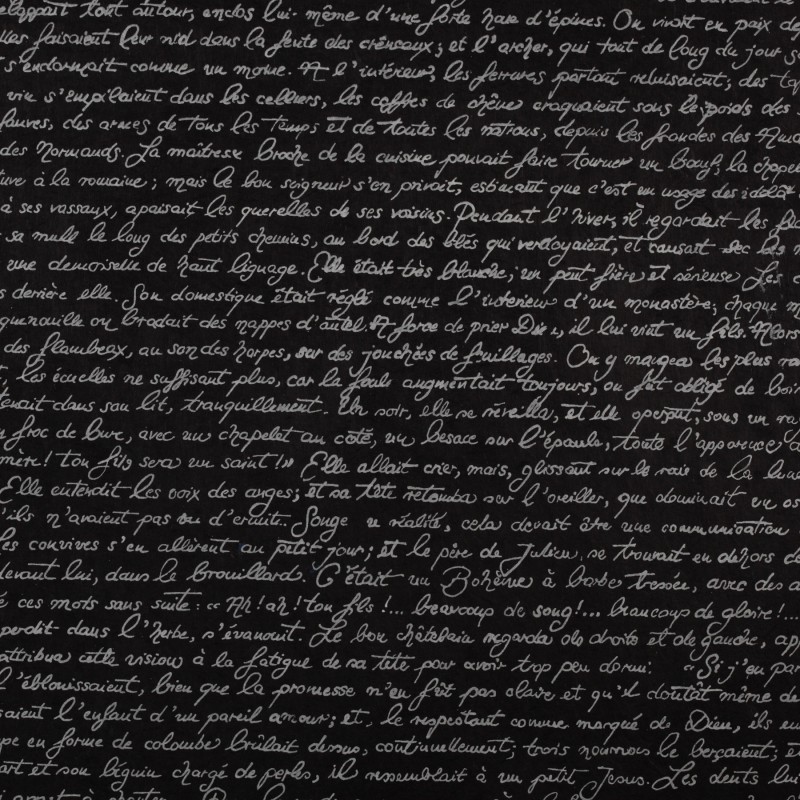 tout autour, enclos lui-même d'une forte haie d'épines. On vivait en paix de
faisaient leur nid dans la fente des créneaux; et l'archer, qui tout de long du jour
s'endormait comme un moine. A l'intérieur, les ferrures partout reluisaient; des
vin s'empilaient dans les celliers, les coffres de chêne craquaient sous le poids des
fauves, des armes de tous les temps et de toutes les nations, depuis les frondes des
des Normands. La maîtresse broche de la cuisine pouvait faire tourner un bœuf; la chapel
à la romaine; mais le bon seigneur s'en privait, estimant que c'est un usage des idolâ
à ses vassaux, apaisait les querelles de ses voisins. Pendant l'hiver, il regardait les
sa mule le long des petits chemins, au bord des blés qui verdoyaient, et causait avec les
une demoiselle de haut lignage. Elle était très blanche, un peu fière et sérieuse Les
derrière elle. Son domestique était réglé comme l'intérieur d'un monastère; chaque
quenouille ou brodait des nappes d'autel. A force de prier Dieu, il lui vint un fils. Alors
des flambeaux, au son des harpes, sur des jonchées de feuillages. On y mangea les plus
les écuelles ne suffisant plus, car la foule augmentait toujours, on fut obligé de boi
tenait dans son lit, tranquillement. Un soir, elle se réveilla, et elle aperçut, sous un
froc de bure, avec un chapelet au côté, un besace sur l'épaule, toute l'apparence
mère! ton fils sera un saint!» Elle allait crier, mais, glissant sur le raie de la lune
Elle entendit les voix des anges; et sa tête retomba sur l'oreiller, que dominait un os
n'avaient pas vu d'ermite. Songe réalité, cela devait être une communication
convives s'en allèrent au petit jour; et le père de Julien se trouvait en dehors
devant lui, dans le brouillard. C'était un Bohême à barbe tressée, avec des
ces mots sans suite: « Ah! ah! ton fils!... beaucoup de sang!... beaucoup de gloire!...
perdit dans l'herbe, s'évanouit. Le bon châtelain regarda de droite et de gauche, app
attribua cette vision à la fatigue de sa tête pour avoir trop peu dormi: « Si j'en par
l'éblouissaient, bien que la promesse n'en fût pas claire et qu'il doutât même de
l'enfant d'un pareil amour; et, le respectant comme marqué de Dieu, ils
en forme de colombe brûlait dessus, continuellement; trois nourrices le berçaient;
et son béguin chargé de perles, il ressemblait à un petit Jesus. Les dents lui